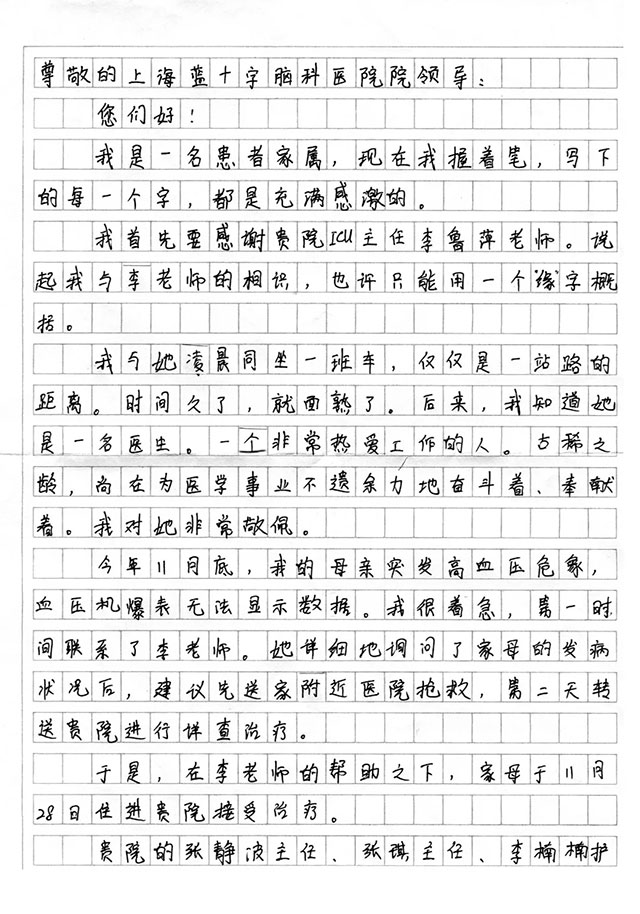 尊敬的上海蓝十字脑科医院院领导：
您们好！
我是一名患者家属，现在我握着笔，写下
的每一个字，都是充满感激的。
我首先要感谢贵院ICU主任李鲁萍老师。说
起我与李老师的相识，也许只能用一个“缘”字概
括。
我与她凌晨同坐一班车，仅仅是一站路的
距离。时间久了，就面熟了。后来，我知道她
是一名医生。一个非常热爱工作的人。古稀之
龄，尚在为医学事业不遗余力地奋斗着、奉献
着。我对她非常敬佩。
今年11月底，我的母亲突发高血压危象，
血压机爆表无法显示数据。我很着急，第一时
间联系了李老师。她详细地询问了家母的发病
状况后，建议先送家附近医院抢救，第二天转
送贵院进行详查治疗。
于是，在李老师的帮助之下，家母于11月
28日住进贵院接受治疗。
贵院的张静波主任、张琪主任、李楠楠护